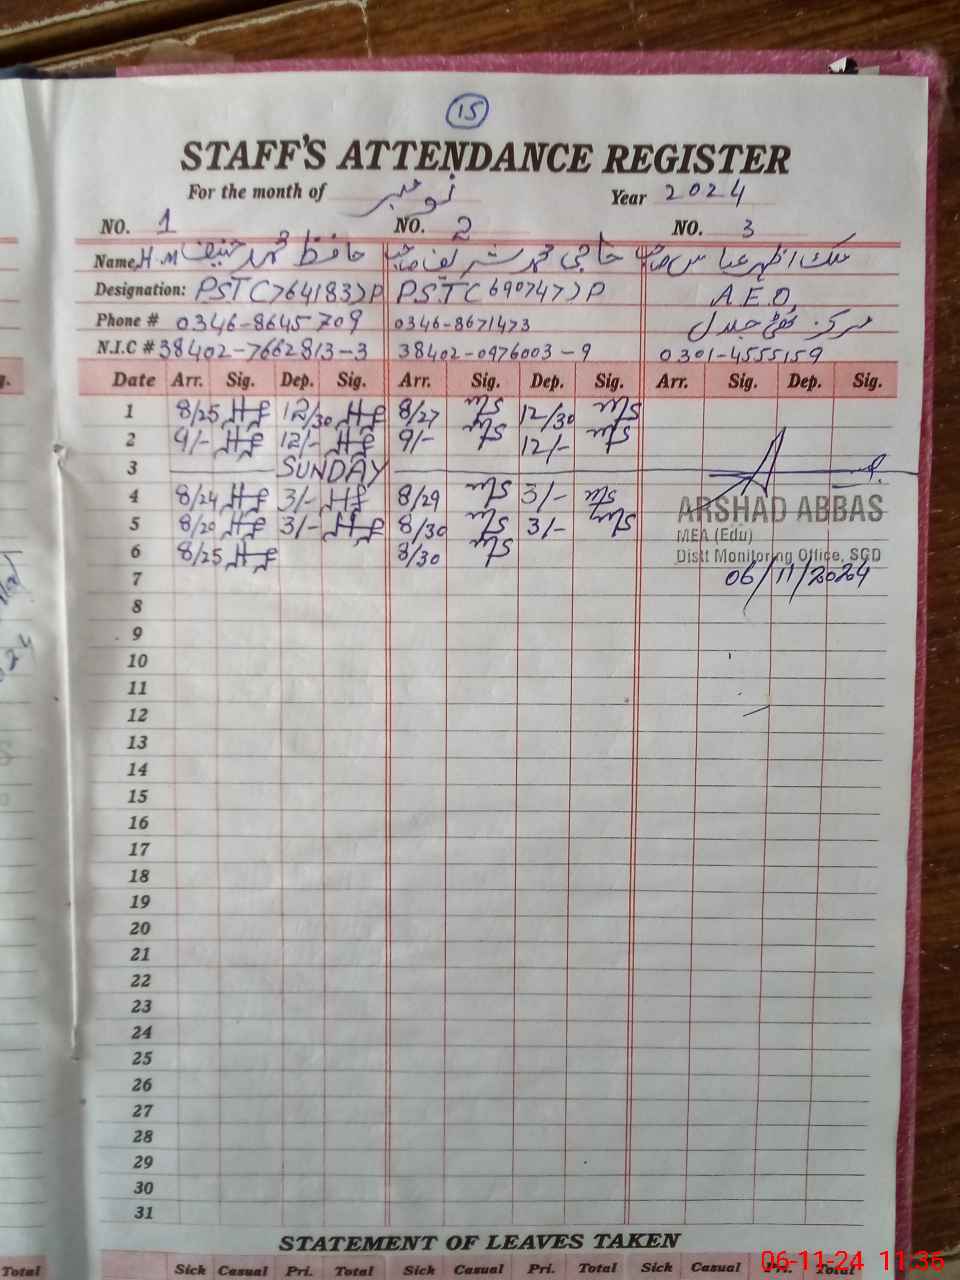 15
STAFF'S ATTENDANCE REGISTER
For the month of نومبر Year 2024
NO. 1 NO. 2 NO. 3
Name H.M حافظ محمد حنیف حاجی محمد شریف صاحب ملک اظہر عباس صاحب
Designation: PST(764183)P PST(690747)P A.E.O,
Phone # 0346-8645709 0346-8671473 مرکز
N.I.C # 38402-7662813-3 38402-0976003-9 0301-4555159
Date Arr. Sig. Dep. Sig. Arr. Sig. Dep. Sig. Arr. Sig. Dep. Sig.
1 8/25 12/30 8/27 MS 12/30 MS
2 9/- 12/- 9/- MS 12/- MS
3 SUNDAY
4 8/24 3/- 8/29 MS 3/- MS
ARSHAD ABBAS
5 8/20 3/- 8/30 MS 3/- MS
MEA (Edu)
6 8/25 8/30 MS
Distt Monitoring Office, SGD
7 06/11/2024
8
9
10
11
12
13
14
15
16
17
18
19
20
21
22
23
24
25
26
27
28
29
30
31
STATEMENT OF LEAVES TAKEN
Total Sick Casual Pri. Total Sick Casual Pri. Total Sick Casual Pri. Total
06-11-24 11:35